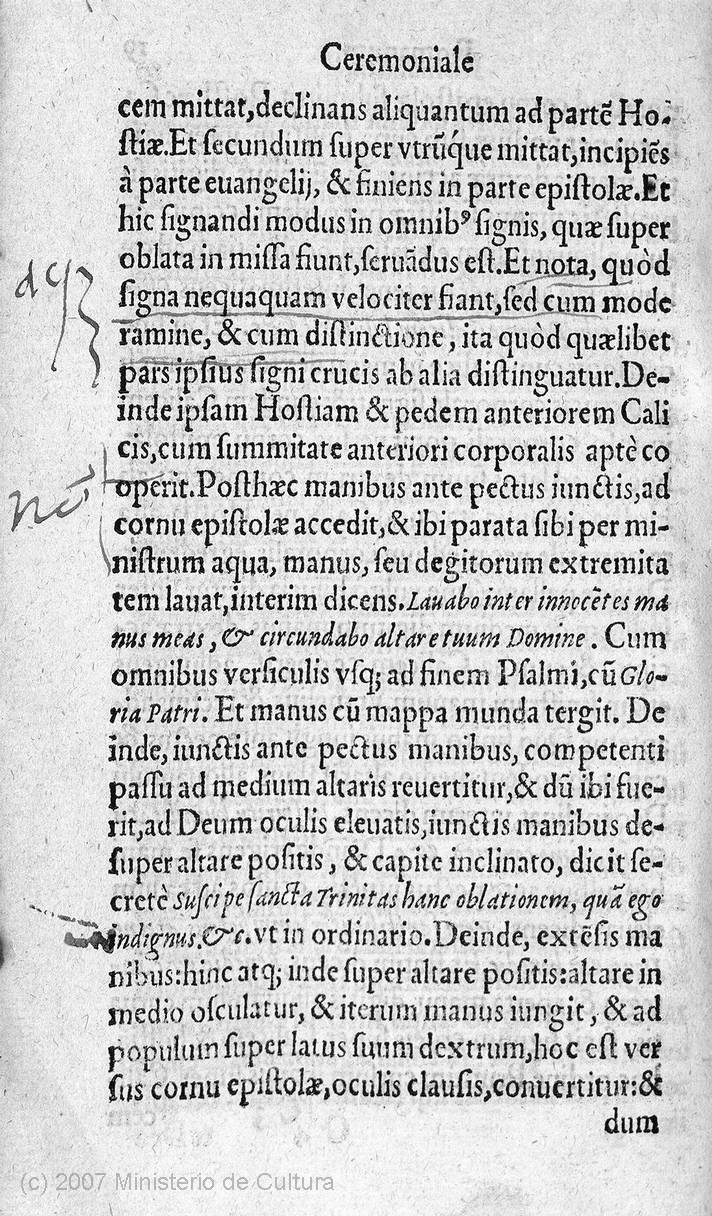 Ceremoniale
cem mittat,declinans aliquantum ad partē Ho-
ſtiæ.Et ſecundum ſuper vtrūq́ue mittat,incipiēs
à parte euangelij, & finiens in parte epiſtolæ.Et
hic ſignandi modus in omnibꝰ ſignis, quæ ſuper
oblata in miſſa fiunt,ſeruādus eſt.Et nota, quòd
ſigna nequaquam velociter fiant,ſed cum mode
ramine, & cum diſtinctione, ita quòd quælibet
pars ipſius ſigni crucis ab alia diſtinguatur.De-
inde ipſam Hoſtiam & pedem anteriorem Cali
cis,cum ſummitate anteriori corporalis aptè co
operit.Poſthæc manibus ante pectus iunctis,ad
cornu epiſtolæ accedit,& ibi parata ſibi per mi-
niſtrum aqua, manus, ſeu degitorum extremita
tem lauat,interim dicens.Lauabo inter innocētes ma
nus meas, & circundabo altare tuum Domine. Cum
omnibus verſiculis vſq; ad finem Pſalmi,cū Glo-
ria Patri. Et manus cū mappa munda tergit. De
inde, iunctis ante pectus manibus, competenti
paſſu ad medium altaris reuertitur,& dū ibi fue-
rit,ad Deum oculis eleuatis,iunctis manibus de-
ſuper altare poſitis, & capite inclinato, dicit ſe-
cretè Suſcipe ſancta Trinitas hanc oblationem, quā ego
indignus.&c.vt in ordinario.Deinde, extēſis ma
nibus:hinc atq; inde ſuper altare poſitis:altare in
medio oſculatur, & iterum manus iungit, & ad
populum ſuper latus ſuum dextrum,hoc eſt ver
ſus cornu epiſtolæ,oculis clauſis,conuertitur:&
dum
(c) 2007 Ministerio de Cultura